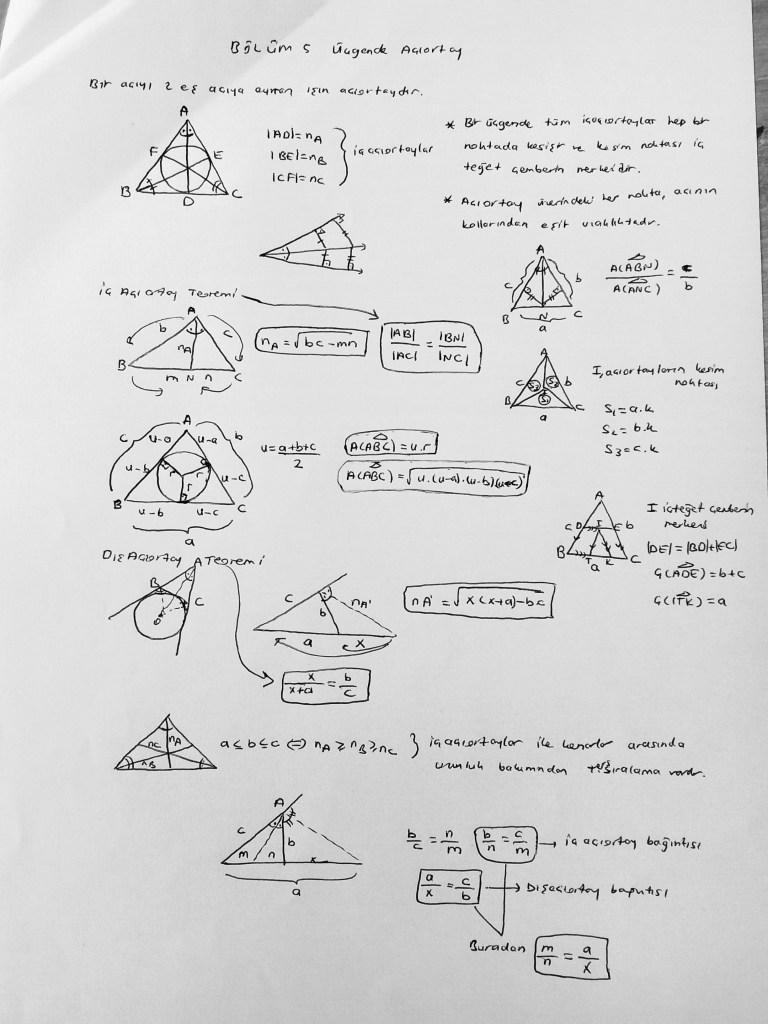 BÖLÜM 5 Üçgende Açıortay
Bir açıyı 2 eş açıya ayıran ışın açıortaydır.
A
F E
B D C
|AD| = nA
|BE| = nB
|CF| = nC
} iç açıortaylar
* Bir üçgende tüm iç açıortaylar hep bir
noktada kesişir ve kesim noktası iç
teğet çemberin merkezidir.
* Açıortay üzerindeki her nokta, açının
kollarından eşit uzaklıktadır.
A
c b
B N C
a
A(ABN) / A(ANC) = c / b
İç Açıortay Teoremi
A
b c
nA
B m N n C
nA = √bc - mn
|AB| / |AC| = |BN| / |NC|
A
c S2 S3 b
S1
B a C
I, açıortayların kesim
noktası
S1 = a.k
S2 = b.k
S3 = c.k
A
c u-a u-a b
u-b r r r u-c
B u-b u-c C
a
u = a+b+c / 2
A(ABC) = u.r
A(ABC) = √u.(u-a).(u-b)(u-c)
A
c D I E b
B T a K C
I içteğet çemberin
merkezi
|DE| = |BD|+|EC|
Ç(ADE) = b+c
Ç(ITK) = a
Dış Açıortay Teoremi
A
B
C
O
c b nA'
a x
nA' = √x(x+a)-bc
x / x+a = b / c
nC nA
nB
a ≤ b ≤ c ⇔ nA ≥ nB ≥ nC } iç açıortaylar ile kenarlar arasında
uzunluk bakımından ters sıralama vardır.
A
c b
m n x
a
b/c = n/m
b/n = c/m → iç açıortay bağıntısı
a/x = c/b → Dış açıortay bağıntısı
Buradan m/n = a/x